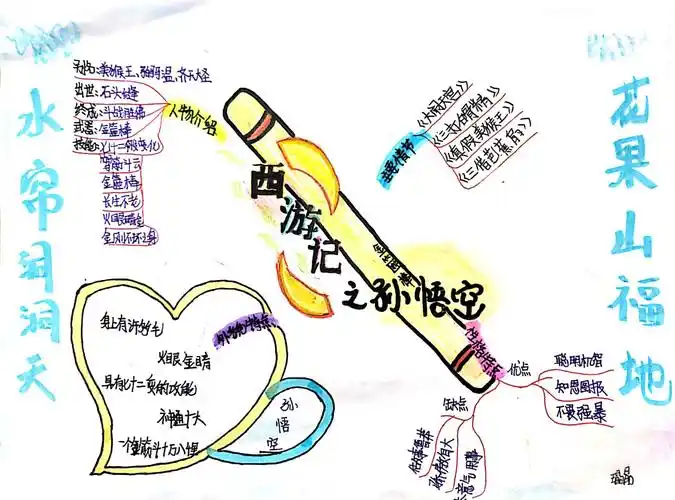 水帘洞洞天
花果山福地
人物介绍
美猴王、弼马温、齐天大圣
出世:石头
终成:斗战胜佛
武器:金箍棒
技能:七十二般变化
筋斗云
金箍棒
长生不老
火眼金睛
金刚不坏之身
主要情节
《大闹天宫》
《三打白骨精》
《真假美猴王》
《三借芭蕉扇》
西游记
之孙悟空
外貌特点
身上有许多毛
火眼金睛
具有七十二变的功能
神通广大
一个筋斗十万八千里
孙悟空
性格特点
优点
聪明机智
知恩图报
不畏强暴
缺点